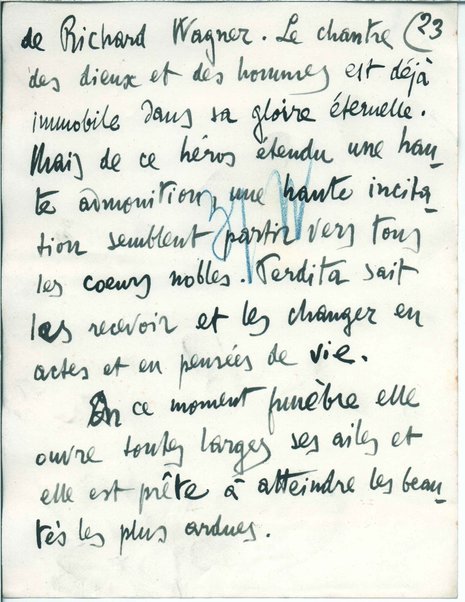 de Richard Wagner. Le chantre (23
des dieux et des hommes est déjà
immobile dans sa gloire éternelle.
Mais de ce héros étendu une hau-
te admonition, une haute incita-
tion semblent partir vers tous
les coeurs nobles. Perdita sait
les recevoir et les changer en
actes et en pensées de vie.
En ce moment funèbre elle
ouvre toutes larges ses ailes et
elle est prête à atteindre les beau-
tés les plus ardues.